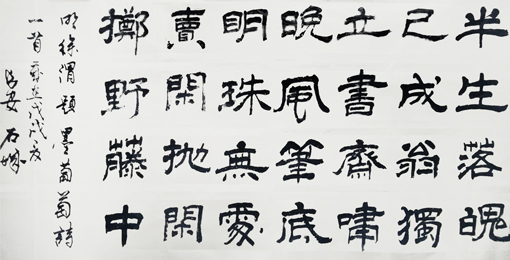 半生落魄
已成翁獨
立書齋嘯
晚風筆底
明珠無處
賣閑拋閑
擲野藤中
明徐渭題墨葡萄詩
一首歲在戊戌夏